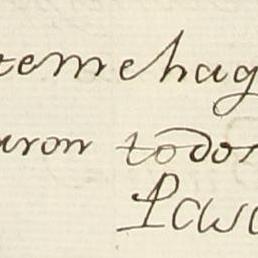 teme hag
aron todos
Pasc